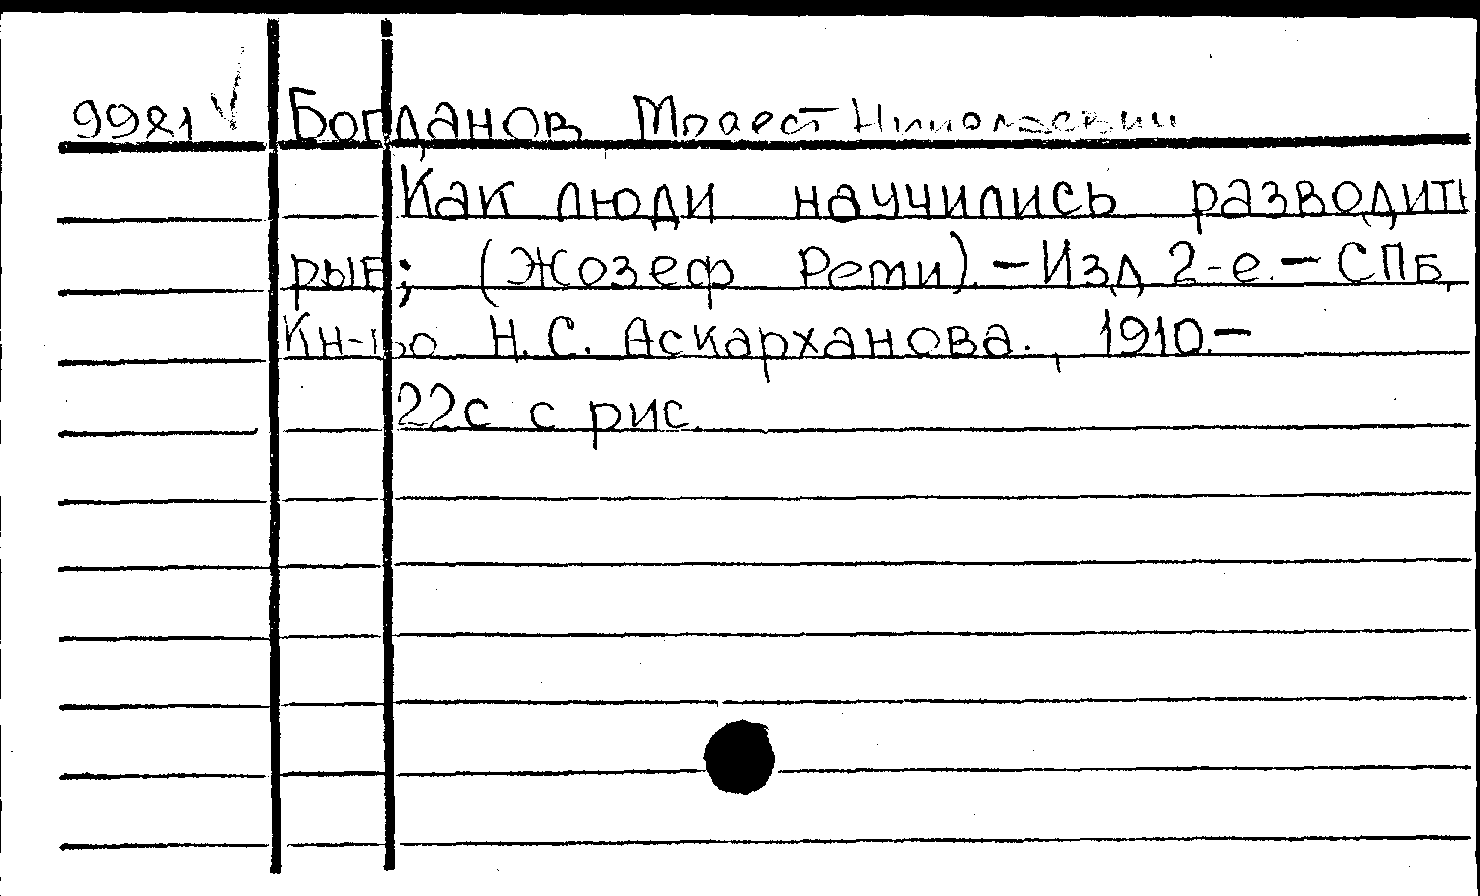 9981 Богданов Модест Николаевич
Как люди научились разводить
рыб; (Жозеф Реми).-Изд 2-е.-СПб,
Кн-во Н.С. Аскарханова., 1910.-
22с с рис.